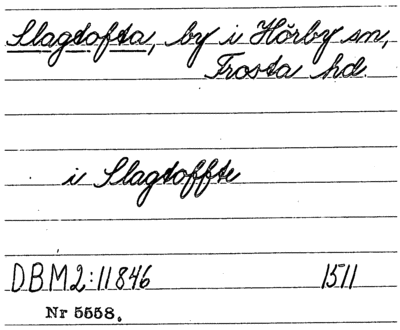 Slagtofta, by i Hörby sn,
Frosta hd.
i Slagtoffte
DBM2:11846 1511
Nr 5558.